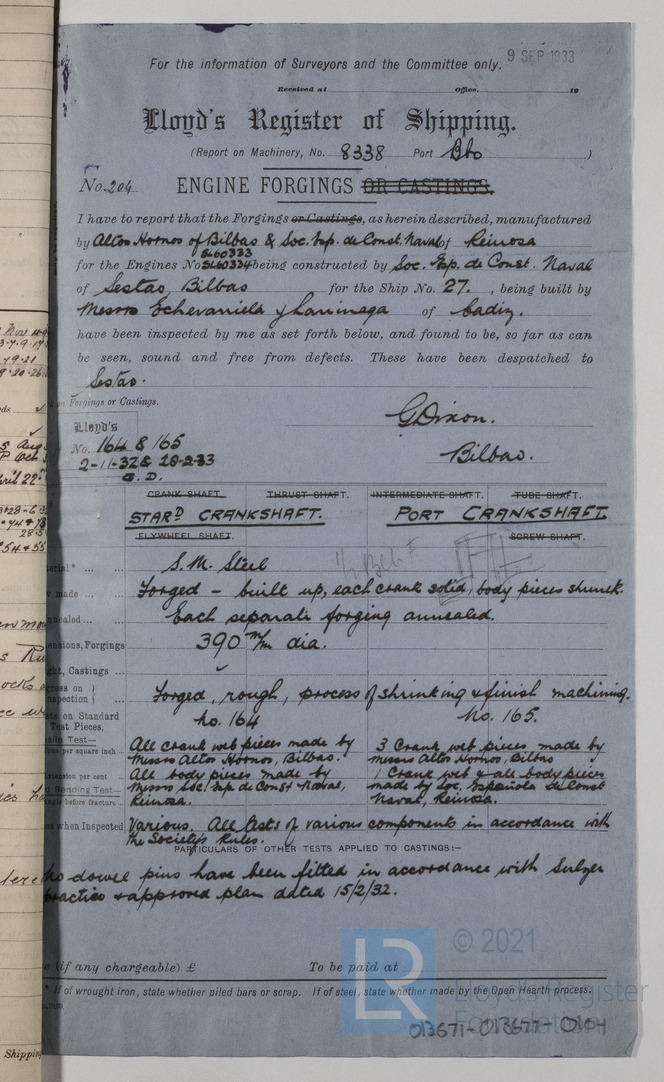 9 SEP 1933
For the information of Surveyors and the Committee only.
Received at Office, 19
Lloyd's Register of Shipping.
(Report on Machinery, No. 8338 Port Bbo )
No. 204 ENGINE FORGINGS OR CASTINGS.
I have to report that the Forgings or Castings, as herein described, manufactured
by Altos Hornos of Bilbao & Soc. Esp. de Const. Naval of Reinosa
SL60333
for the Engines No SL60334 being constructed by Soc. Esp. de Const. Naval
of Sestao, Bilbao for the Ship No. 27. , being built by
Messrs Echevarrieta y Larrinaga of Cadiz.
have been inspected by me as set forth below, and found to be, so far as can
be seen, sound and free from defects. These have been despatched to
Sestao.
on Forgings or Castings.
G Dixon.
Lloyd's
No. 164 & 165
Bilbao.
2-11-32 & 20-2-33
G. D.
CRANK SHAFT. THRUST SHAFT. INTERMEDIATE SHAFT. TUBE SHAFT.
STARD CRANKSHAFT. PORT CRANKSHAFT
FLYWHEEL SHAFT. SCREW SHAFT.
terial* ... S.M. Steel
w made ... Forged - built up, each crank solid, body pieces shrunk.
nnealed ... Each separate forging annealed.
ensions, Forgings 390 m/m dia.
ght, Castings ...
gress on }
nspection } ... Forged, rough, process of shrinking & finish machining.
sts on Standard
Test Pieces. No. 164 No. 165.
nsile Test—
Tons per square inch ... All crank web pieces made by 3 Crank web pieces made by
Messrs Altos Hornos, Bilbao. Messrs Altos Hornos, Bilbao
xtension per cent All body pieces made by 1 Crank web & all body pieces
d Bending Test— Messrs Soc. Esp. de Const Naval, made by Soc. Española de Const
ngle before fracture ... Reinosa. Naval, Reinosa.
es when Inspected Various. All tests of various components in accordance with
the Society's Rules.
PARTICULARS OF OTHER TESTS APPLIED TO CASTINGS:—
No dowel pins have been fitted in accordance with Sulzer
practice & approved plan dated 15/2/32.
e (if any chargeable) £ To be paid at
* If of wrought iron, state whether piled bars or scrap. If of steel, state whether made by the Open Hearth process.
© 2021
LR
Lloyd's Register
Foundation
013671-013677-0104
Shipping